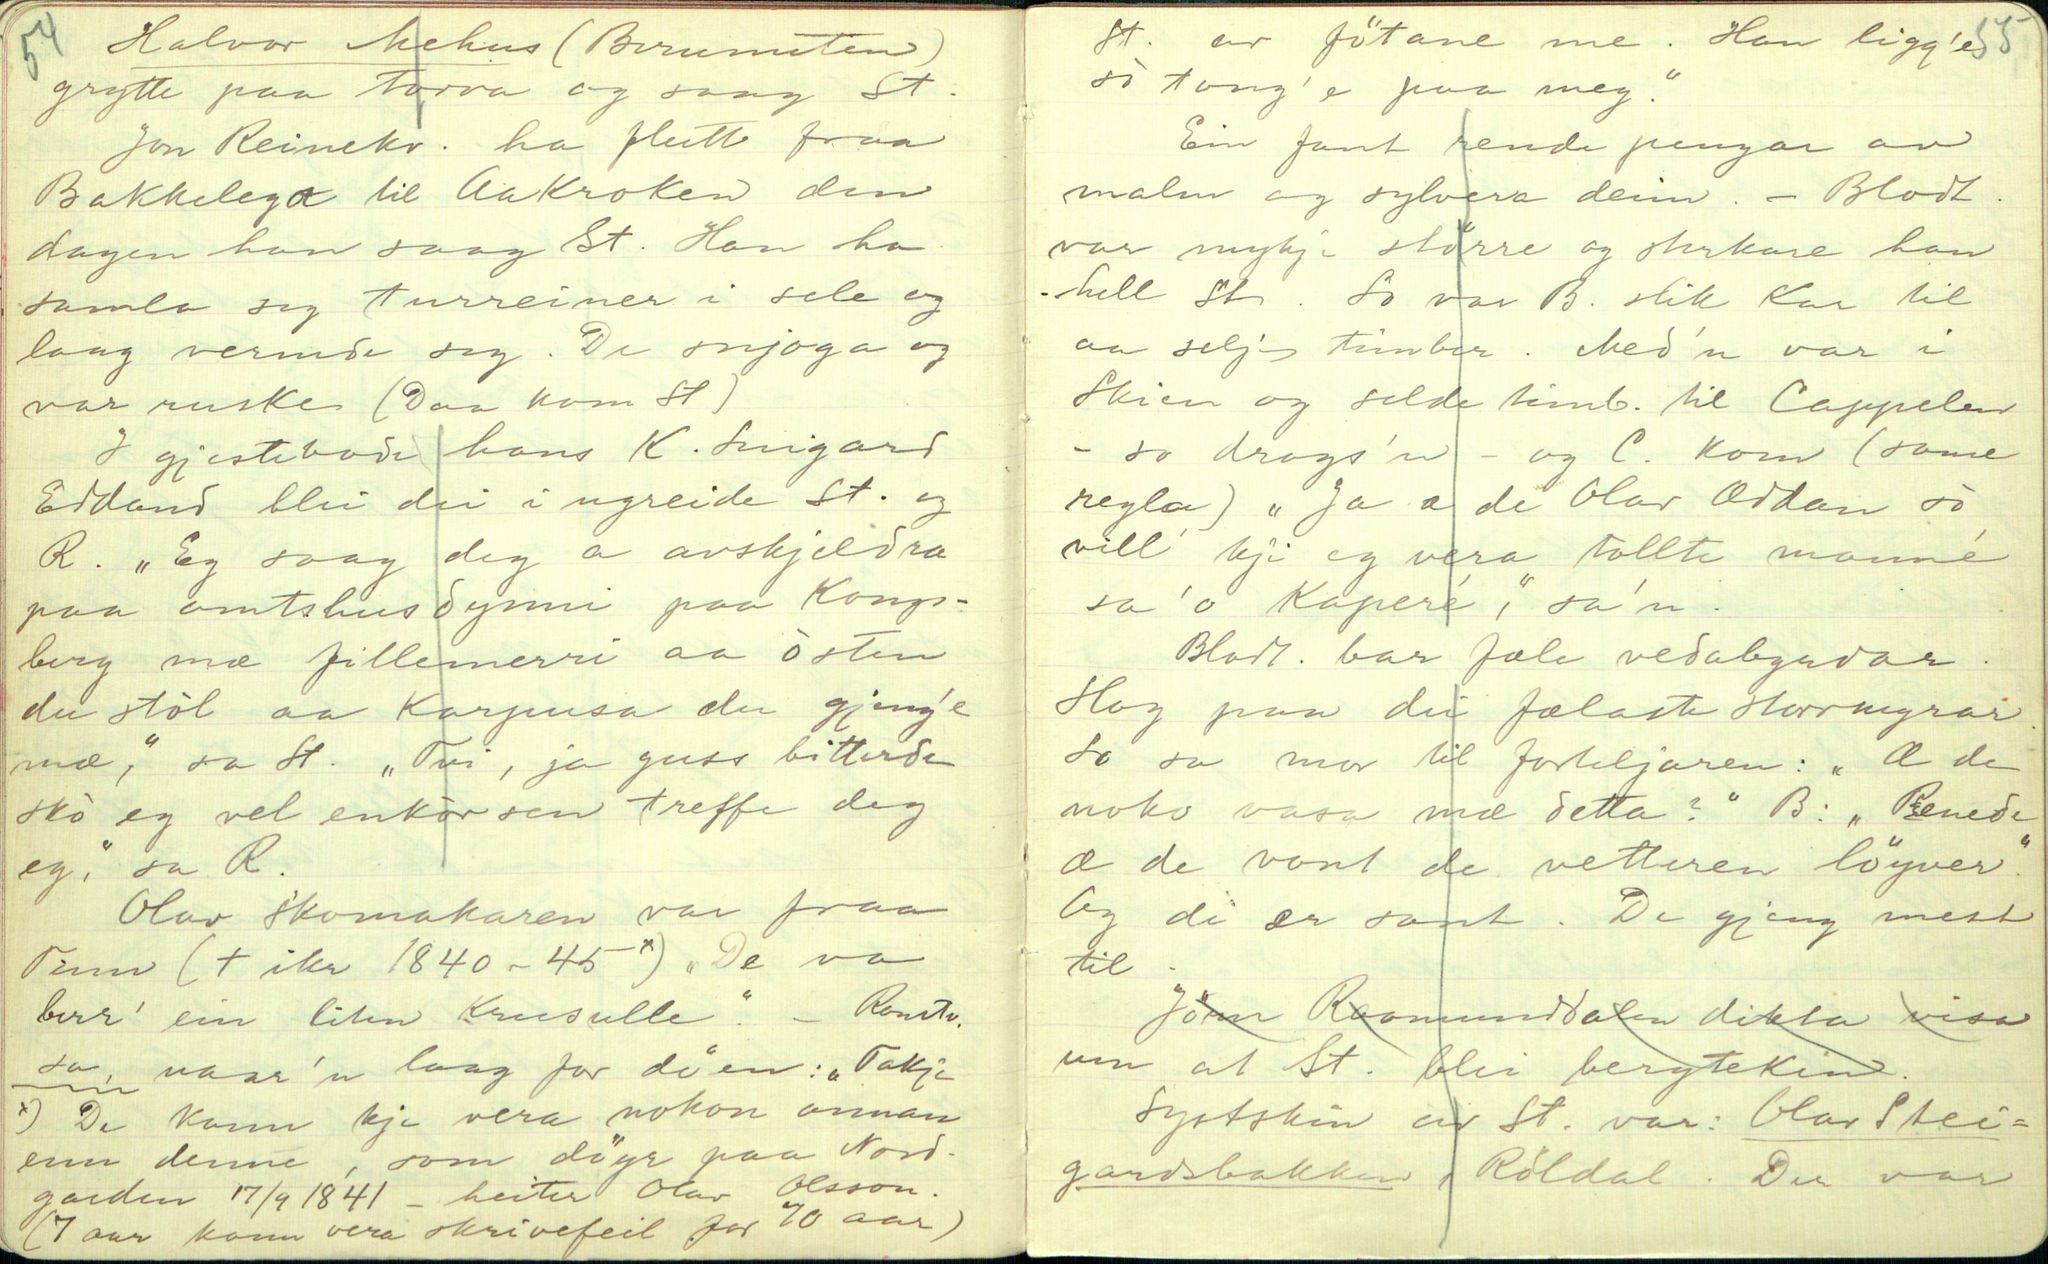 54
Halvor Mehus (Berumsten)
grytte paa torva og saag St.
Jon Reinekv. ha flutt fraa
Bakkelega til Aakroken den
dagen han saag St. Han ha
samla seg turreiner i sele og
laag vermde seg. De snjoga og
var ruske (Daa kom St)
I gjestebode hans K. Snigard
Eddand blei dei i ugreide St. og
R. „Eg saag deg a avskjeldra
paa amtshusdynni paa Kongs-
berg mæ fillemerri aa òsten
du stòl aa Karpusa du gjeng'e
mæ," sa St. „Tvi, ja guss bitterde
skò eg vel enkòrsen treffe deg
eg," sa R.
Olav Skomakaren var fraa
Tinn († ikr 1840-45 x) „De va
berr' ein liten Krusulle". - Romtv.
sa, naar'n laag for döen: „Takje
x) De kann kje vera nokon annan
enn denne, som döyr paa Nord-
garden 17/9 1841 - heiter Olav Olsson.
(7 aar kann vera skrivefeil for 70 aar)
55
St. av fötane me. Han ligg'e
sò tong'e paa meg."
Ein fant rende pengar av
malm og sylvera deim. - Blodt.
var mykje större og sterkare han
hell St. So var B. slik Kar til
aa selje timber. Med'n var i
Skien og selde timb. til Cappelen
- so drogs'n - og C. kom (same
regla) „Ja æ de Olav Øddan sò
vill' kji eg vera tollte manné
sa'o Kaperé," sa'n.
Blodt. bar fæle vedabyrdar.
Slog paa dei fælaste stormyrar.
So sa mor til forteljaren: „Æ de
noko vasa mæ detta?" B: „Renede
æ de vont de vetteren löyver."
Og di er sant. De gjeng mest
til.
Jörn Raamunddalen dikta visa
um at St. blei bergtekin.
Systskin av St. var: Olav Stei=
gardsbakken, Röldal. Der var